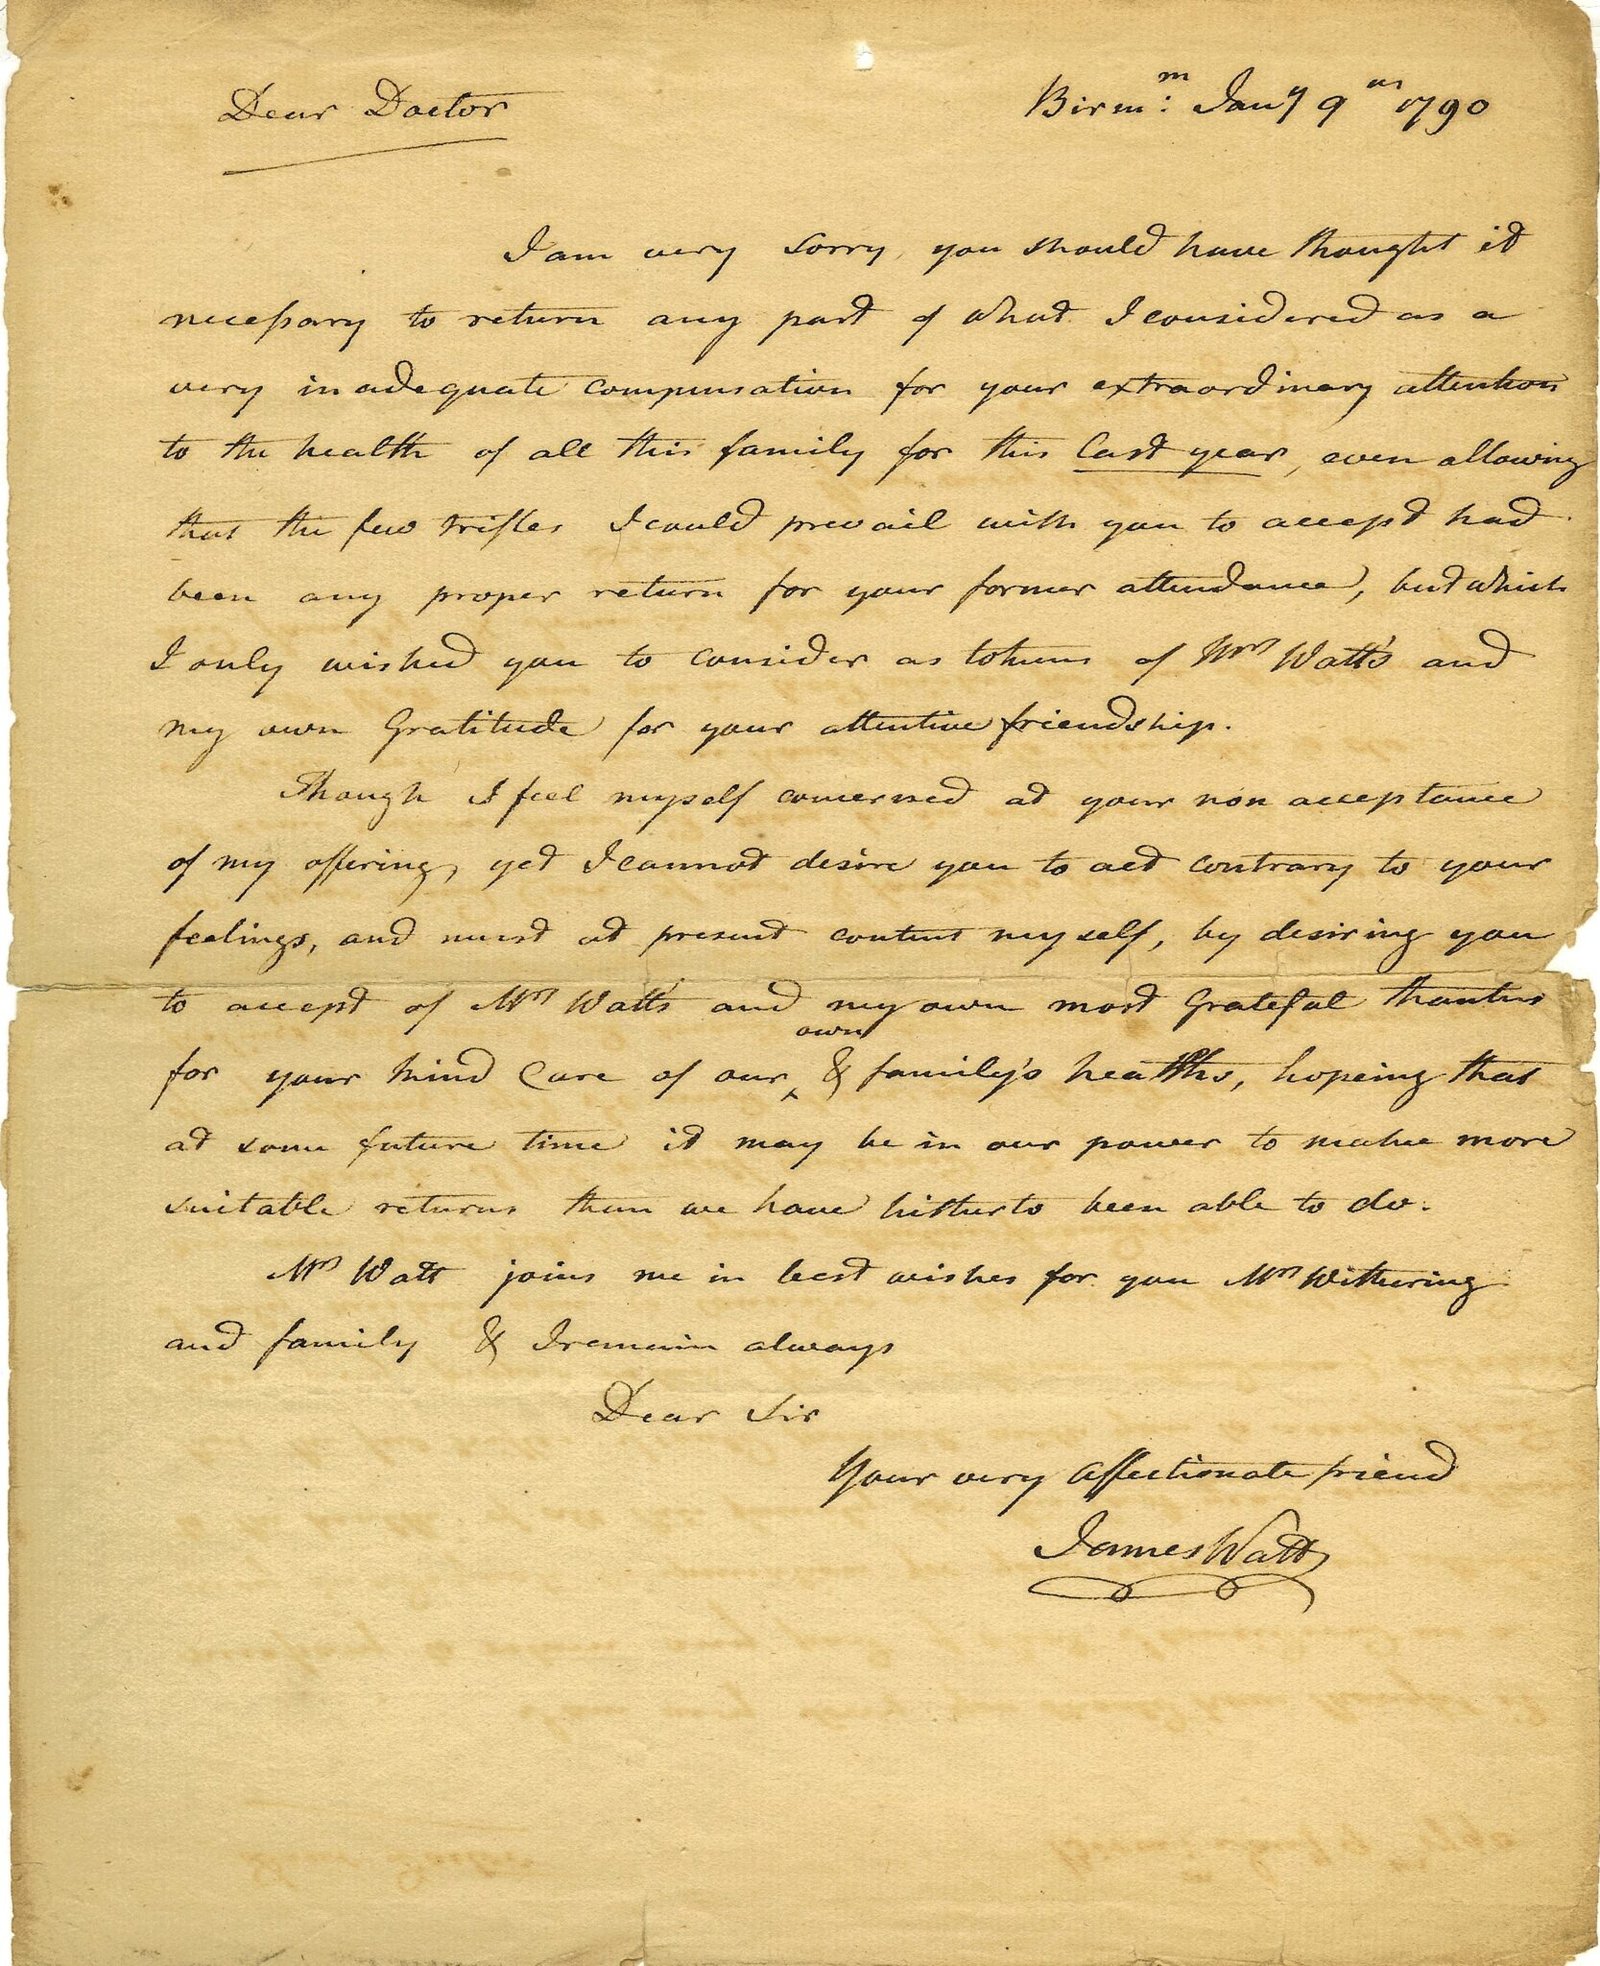 Dear Doctor
Birm.m: Jany 9th 1790
I am very sorry, you should have thought it
necessary to return any part of what I considered as a
very inadequate compensation for your extraordinary attention
to the health of all this family for this last year, even allowing
that the few trifles I could prevail with you to accept had
been any proper return for your former attendance, but which
I only wished you to consider as tokens of Mrs Watt's and
my own Gratitude for your attentive friendship.
Though I feel myself concerned at your non acceptance
of my offering, yet I cannot desire you to act contrary to your
feelings, and must at present content myself, by desiring you
to accept of Mrs Watt's and my own most Grateful thanks
for your kind Care of our own & family's healths, hopeing that
at some future time it may be in our power to make more
suitable returns than we have hitherto been able to do.
Mrs Watt joins me in best wishes for you Mrs Withering
and family & I remain always
Dear Sir
Your very affectionate friend
James Watt